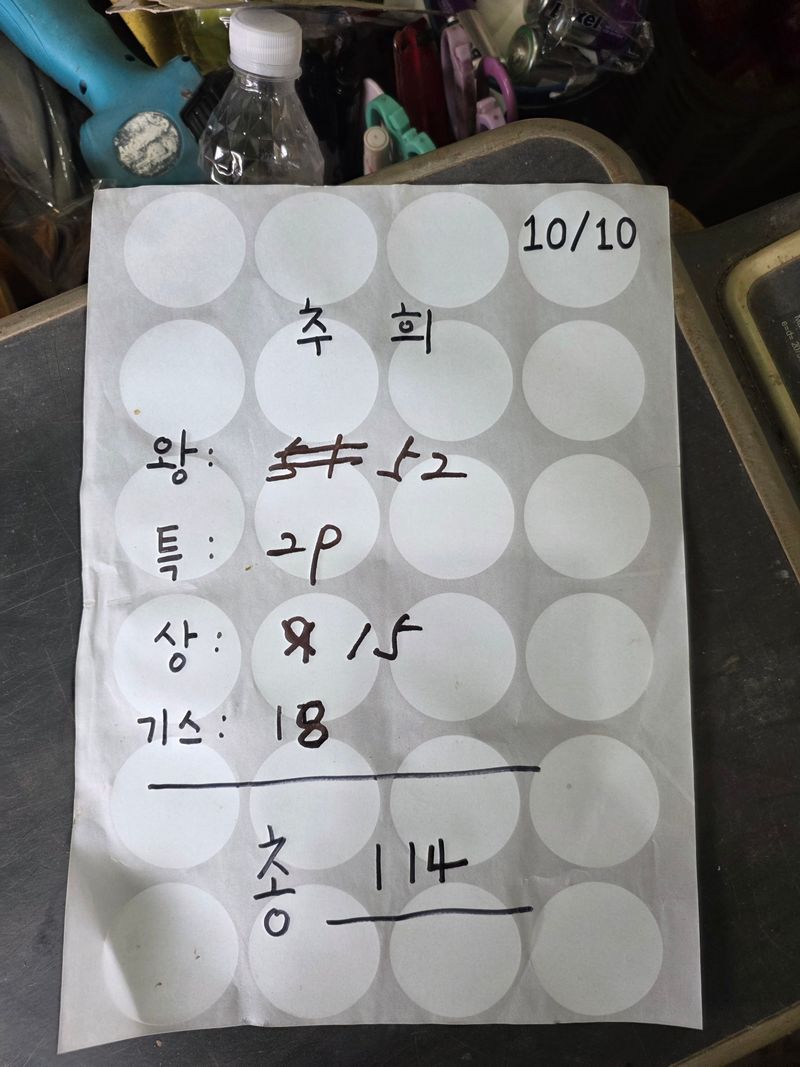 10/10
추 희
왕: 52
특: 29
상: 15
기스: 18
총 114